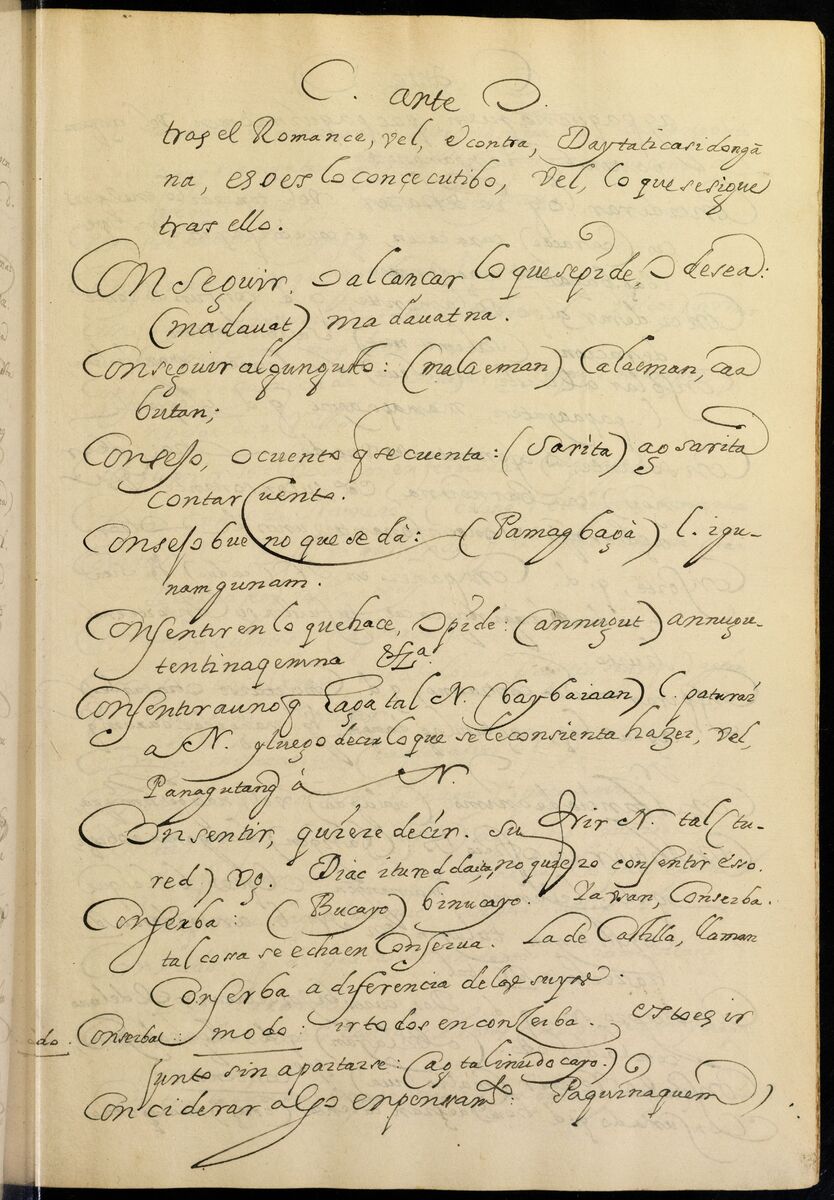 C. ante O.
tras el Romance, vel, econtra, Daytaticasi dongã
na, eso es lo conçecutibo, vel, lo que se sigue
tras ello.
Conseguir, O alcançar lo que se pide, O desea:
(madauat) madauatna.
Conseguir algun gusto: (malaeman) Calaeman, caa
butan;
Consejo, o cuento q se cuenta: (Sarita) ag sarita
contar Cuento.
Consejo bueno que se dà: (Pamagbagà) l. igu-
namgunam.
Consentir en lo que hace, O pide: (annugut) annugu-
tentinaqemna &ra.
Consentir a uno q haga tal N. (baybaiaan) l. paturai
a N. y luego decir lo que se le consienta hazer, vel,
Panagutang à N.
Consentir, quiere decir. Sufrir N. tal (tu-
red) vg. Diac itured daita, no quiero consentir esso.
Conserba: (Bucayo) binucayo. Conserba.
tal cosa se echa en Conserua. La de Castilla, llaman
Conserba a diferencia de las suyas.
do. Conserba modo: ir todos en conserba. esto es ir
junto sin apartarse: (ag talinudo cayo.)
Conciderar algo en pensamto: Paquinaquem)